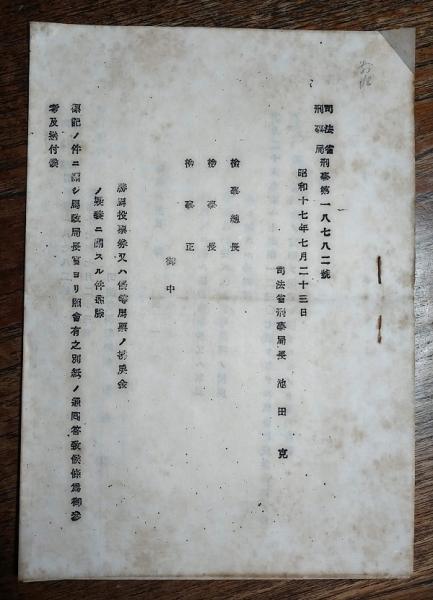 司法省刑事局刑事第一八七八二號
昭和十七年七月二十三日
司法省刑事局長 池田克
檢事總長
檢事長
檢事正
御中
勝馬投票券又ハ優等馬票ノ拂戾金
ノ ニ關スル件通牒
標記ノ件ニ關シ馬政局長官ヨリ照會有之別紙ノ通回答致候條爲御參
考及送付候